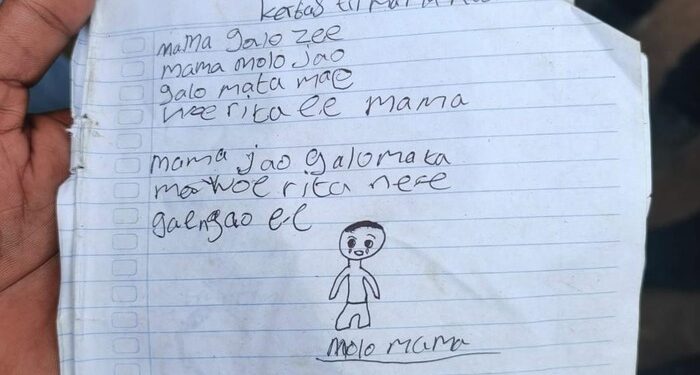 kertas tii mama
mama galo zee
mama molo jao
galo mata mae
woe rita ee mama
mama jao galo mata
mae woe rita ne e
gae ngao ee
molo mama